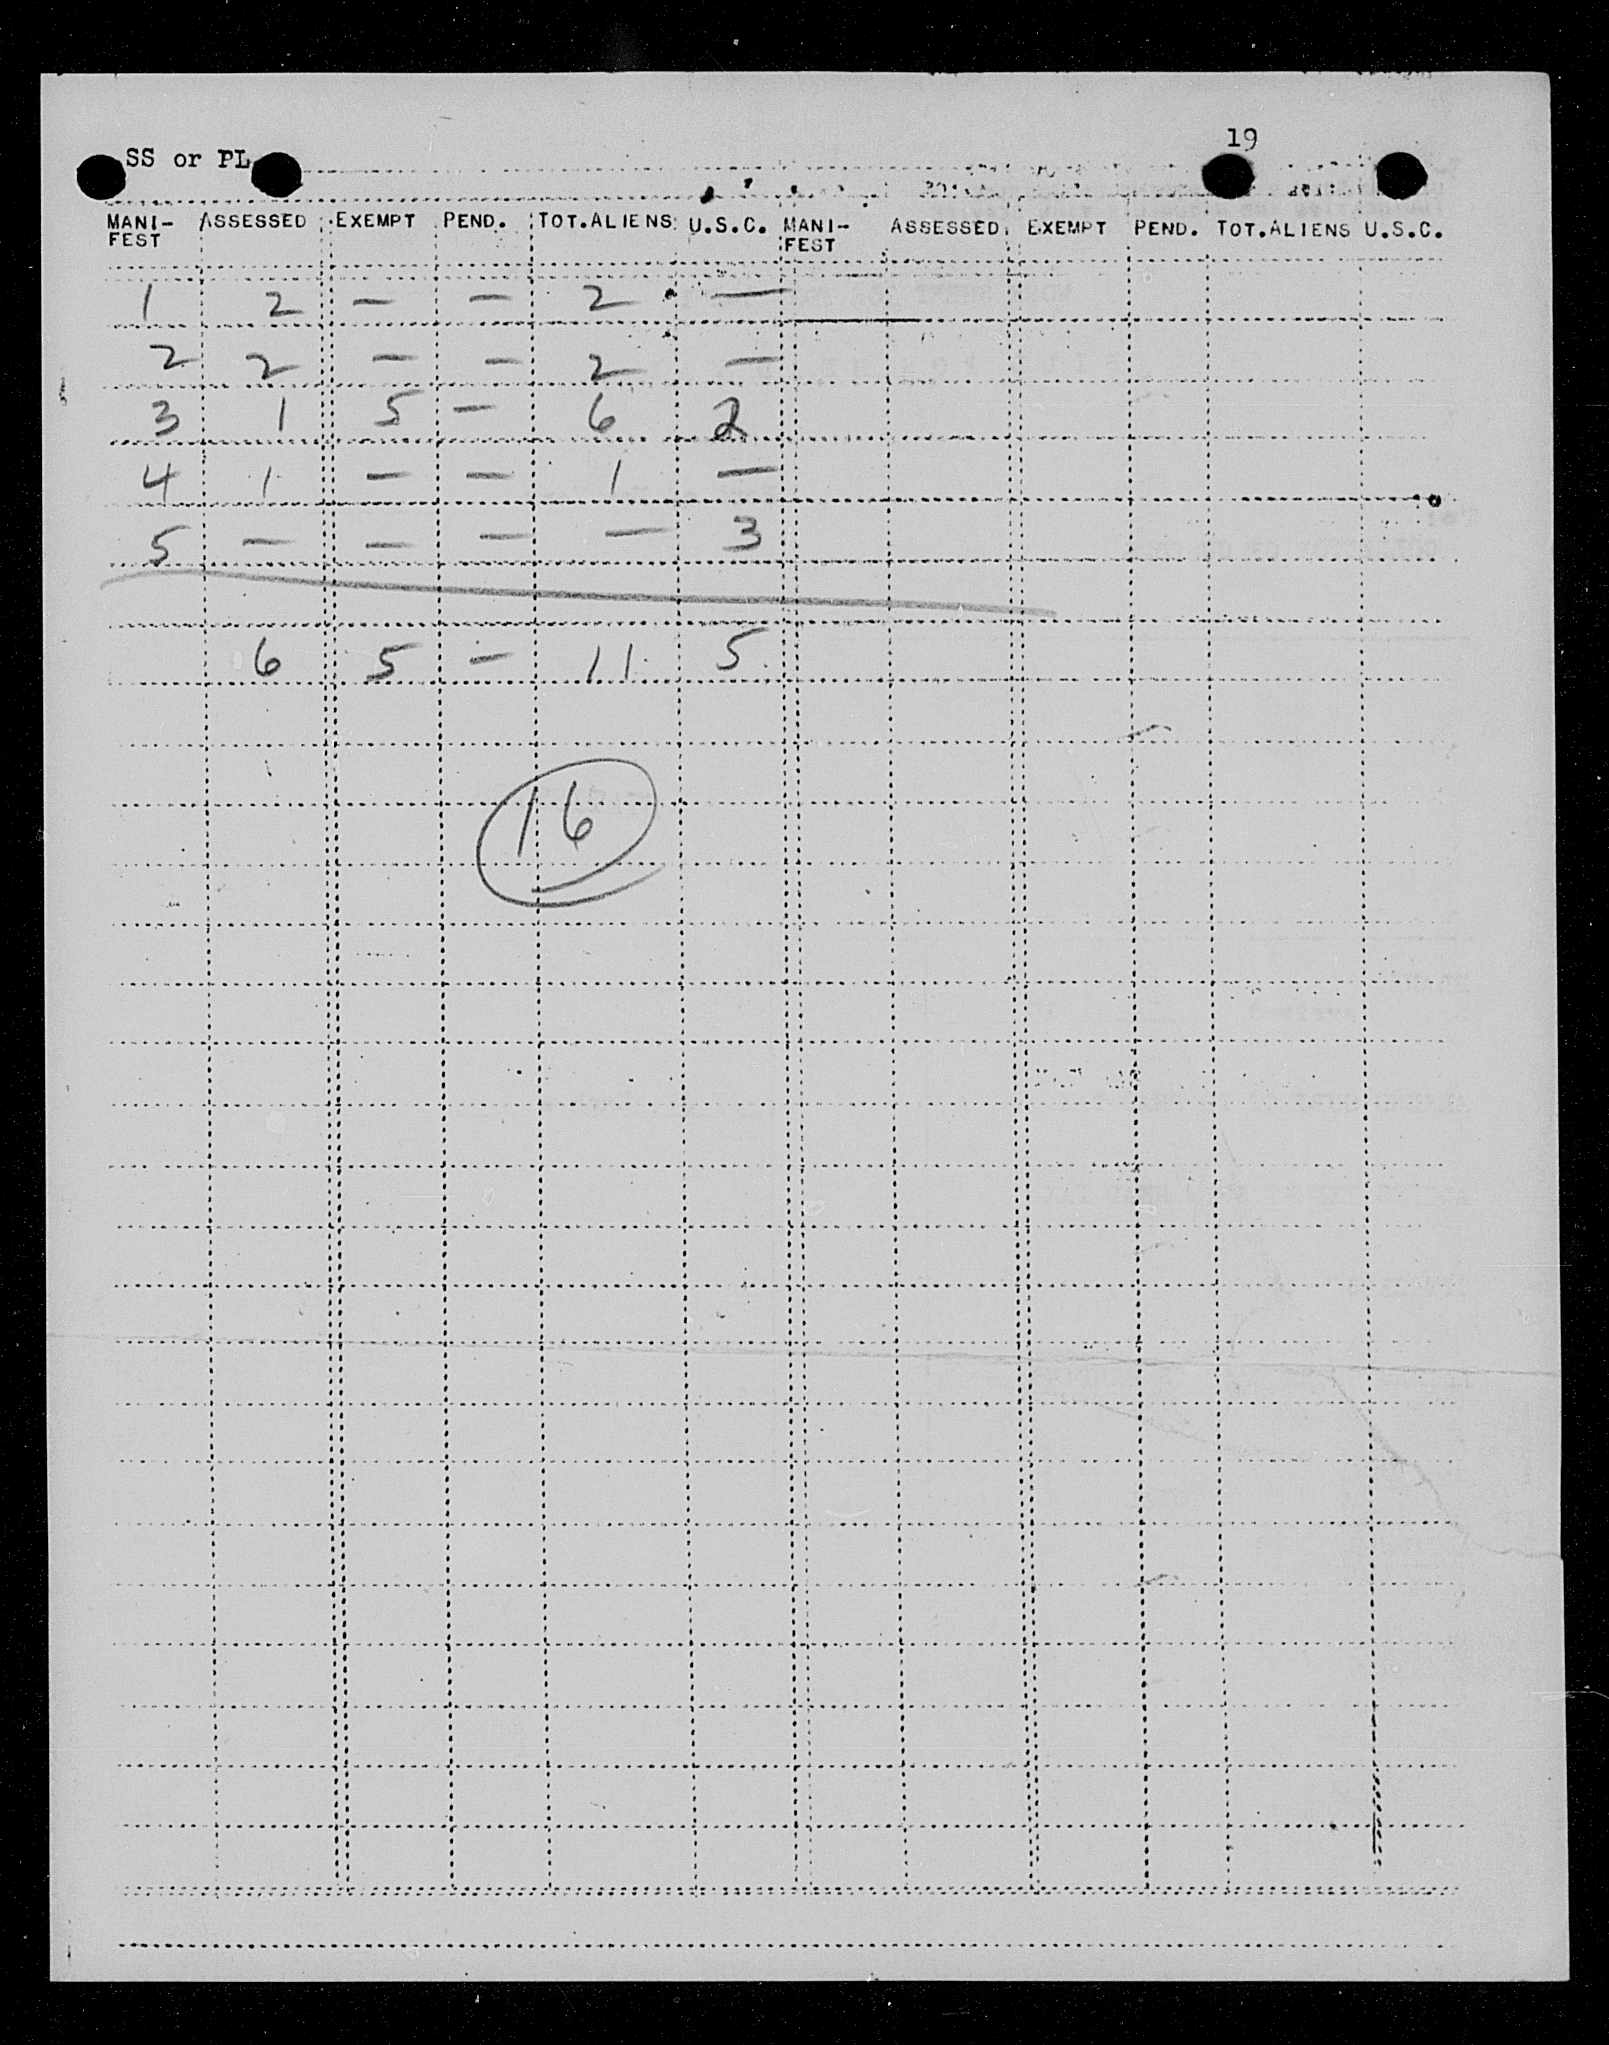 19
SS or PL
MANI-FEST ASSESSED EXEMPT PEND. TOT.ALIENS U.S.C. MANI-FEST ASSESSED EXEMPT PEND. TOT.ALIENS U.S.C.
1 2 — — 2 —
2 2 — — 2 —
3 1 5 — 6 2
4 1 — — 1 —
5 — — — — 3
6 5 — 11 5
16